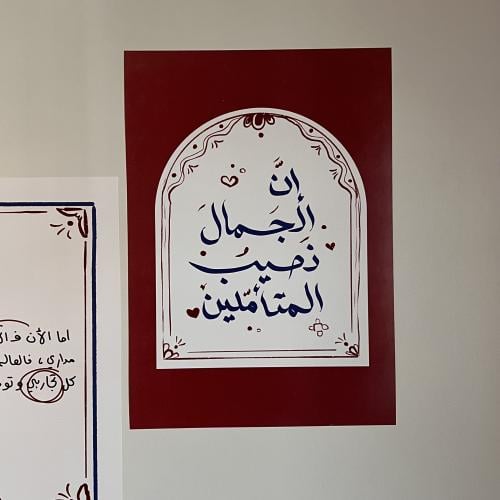 إنَّ
الجمالَ
نَصيبُ
المتأمّلين
اما الأن ف
مداري، فالعالم
كل تجاربي و